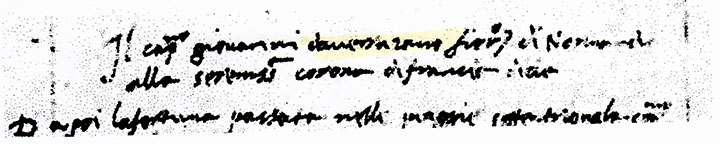 Il cap^no giovanni daverrazano fior^no di Normandia
alla serenis^a corona di francia dice
D apoi lafortuna passata nelle piaggie settentrionale